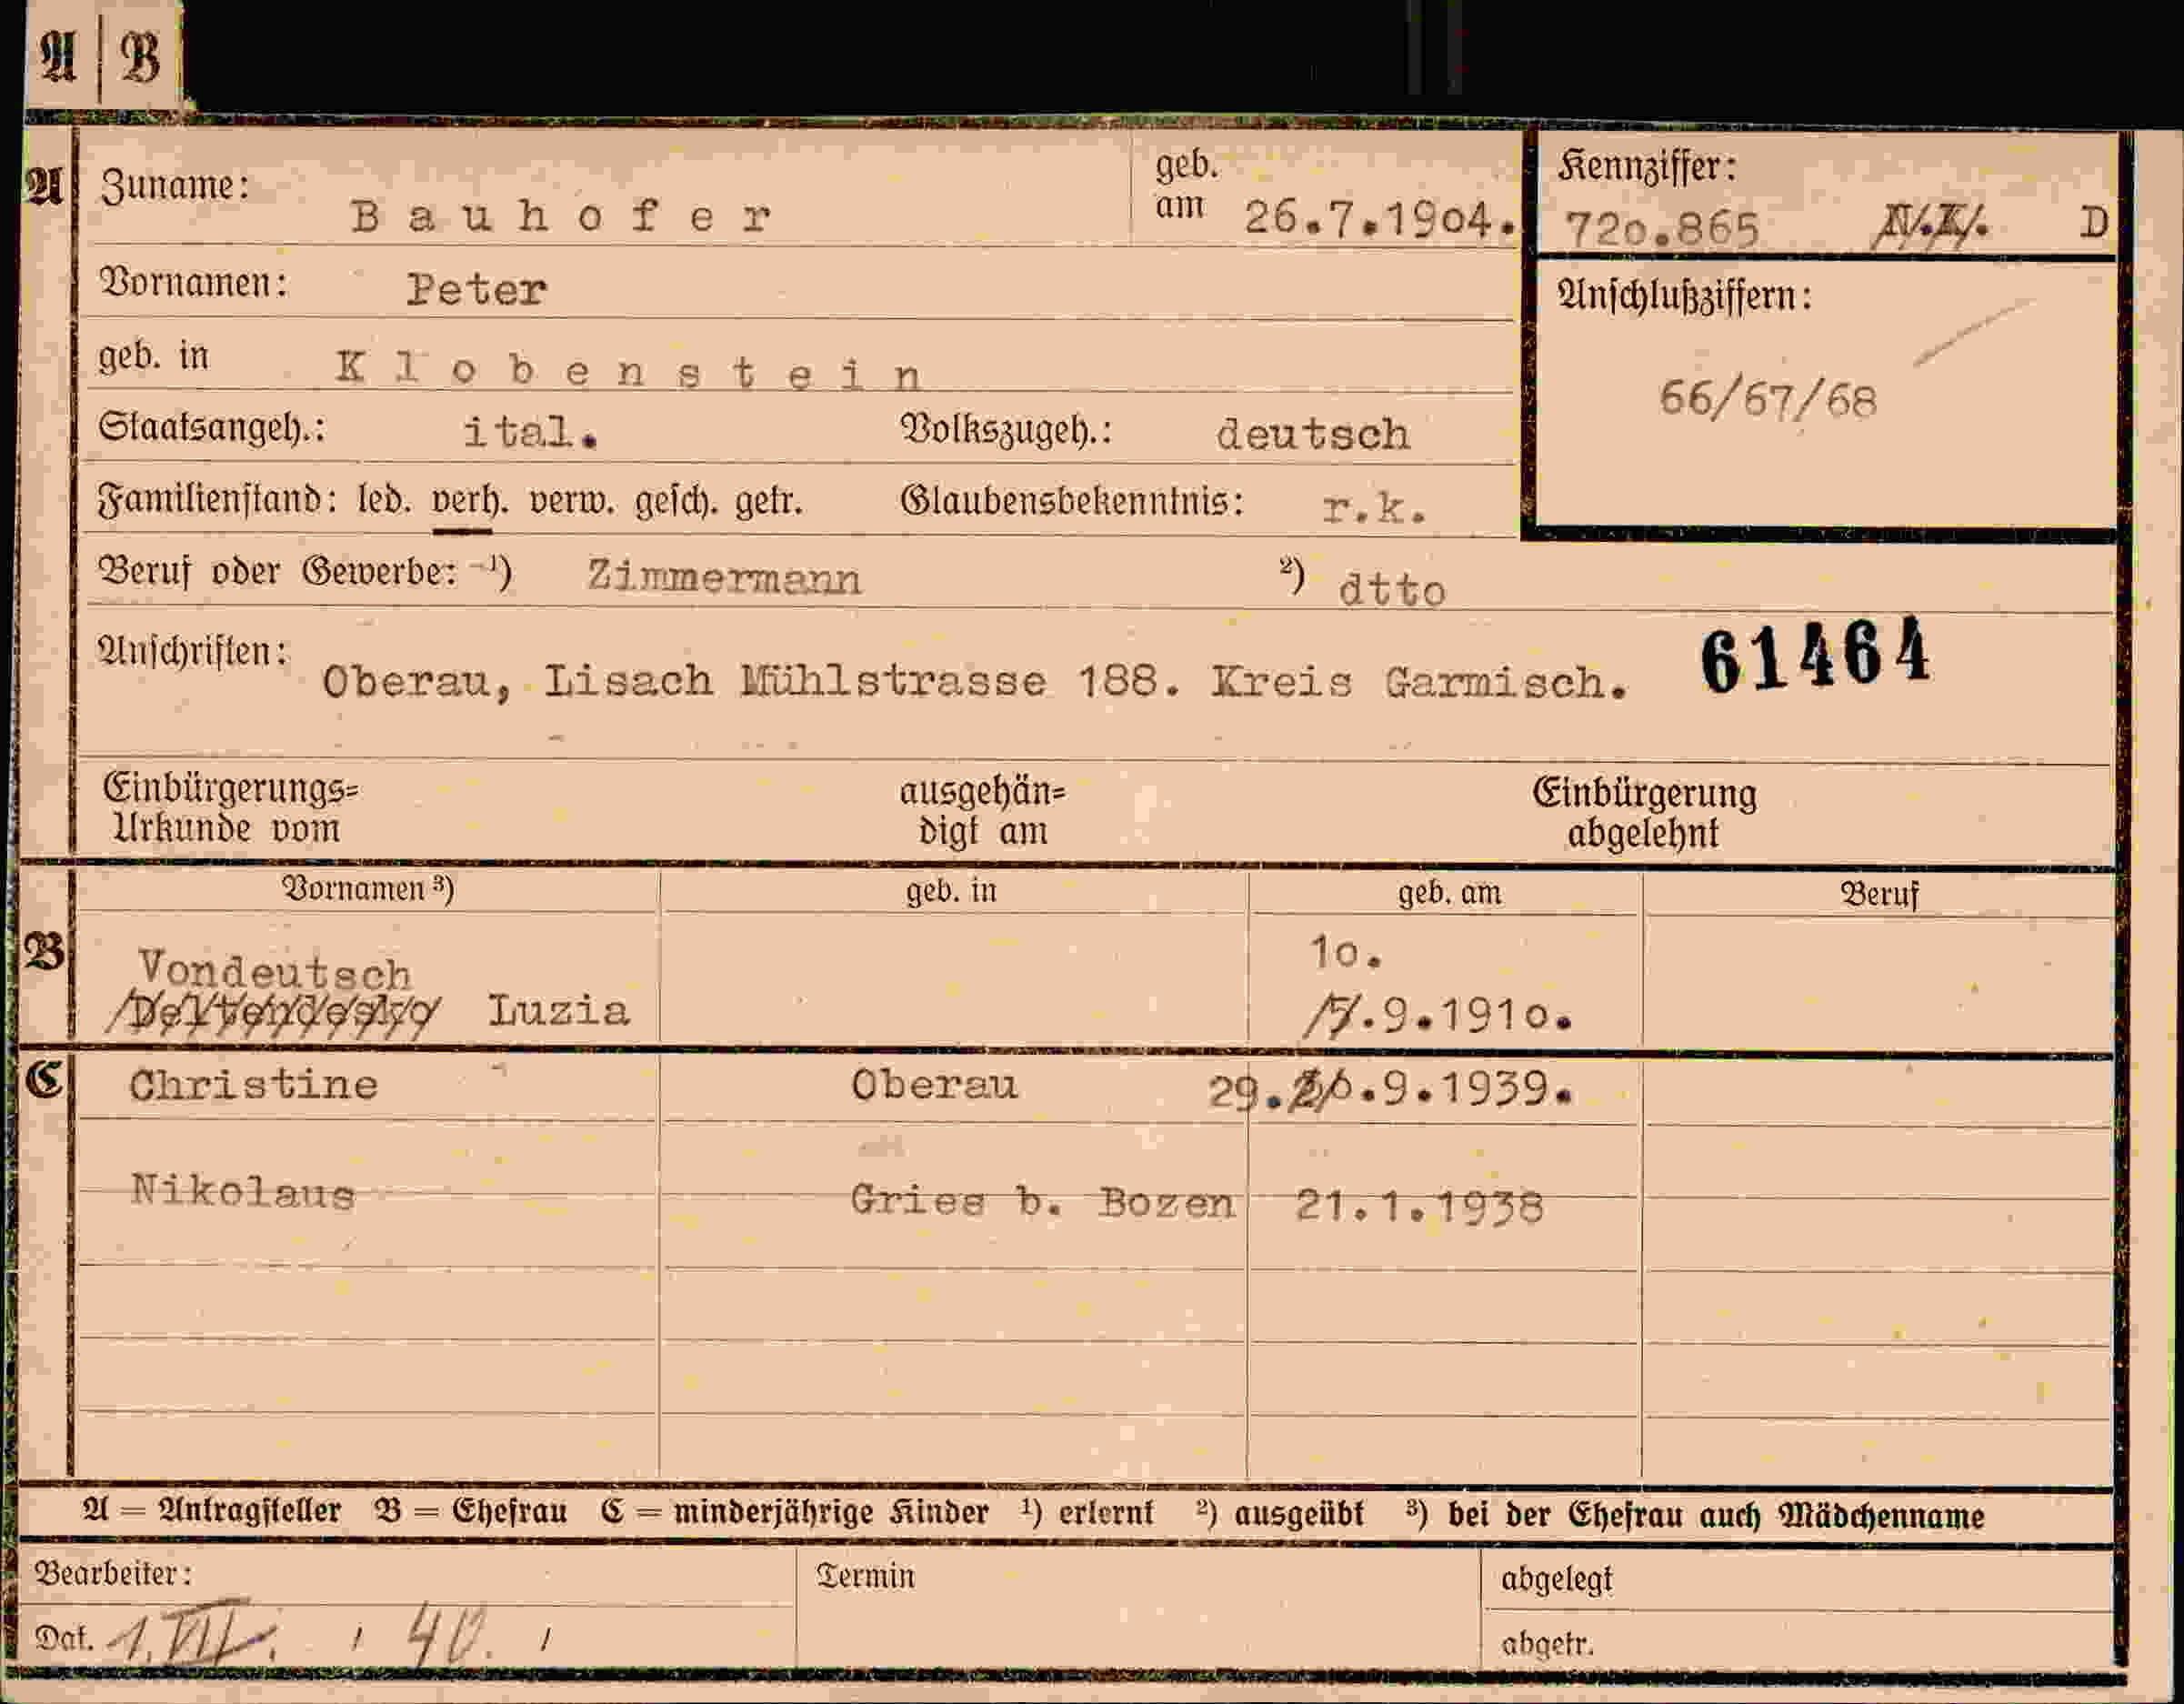 A | B
A Zuname: Bauhofer geb. am 26.7.1904. Kennziffer: 720.865 N.K. D
Vornamen: Peter Anschlußziffern:
geb. in Klobenstein 66/67/68
Staatsangeh.: ital. Volkszugeh.: deutsch
Familienstand: led. verh. verw. gesch. getr. Glaubensbekenntnis: r.k.
Beruf oder Gewerbe: ¹) Zimmermann ²) dtto
Anschriften: Oberau, Lisach Mühlstrasse 188. Kreis Garmisch. 61464
Einbürgerungs= ausgehän= Einbürgerung
Urkunde vom digt am abgelehnt
Vornamen ³) geb. in geb. am Beruf
B Vondeutsch 10.
Luzia .9.1910.
C Christine Oberau 29. .9.1939.
Nikolaus Gries b. Bozen 21.1.1938
A = Antragsteller B = Ehefrau C = minderjährige Kinder ¹) erlernt ²) ausgeübt ³) bei der Ehefrau auch Mädchenname
Bearbeiter: Termin abgelegt
Dat. 1.VII. 40. abgetr.